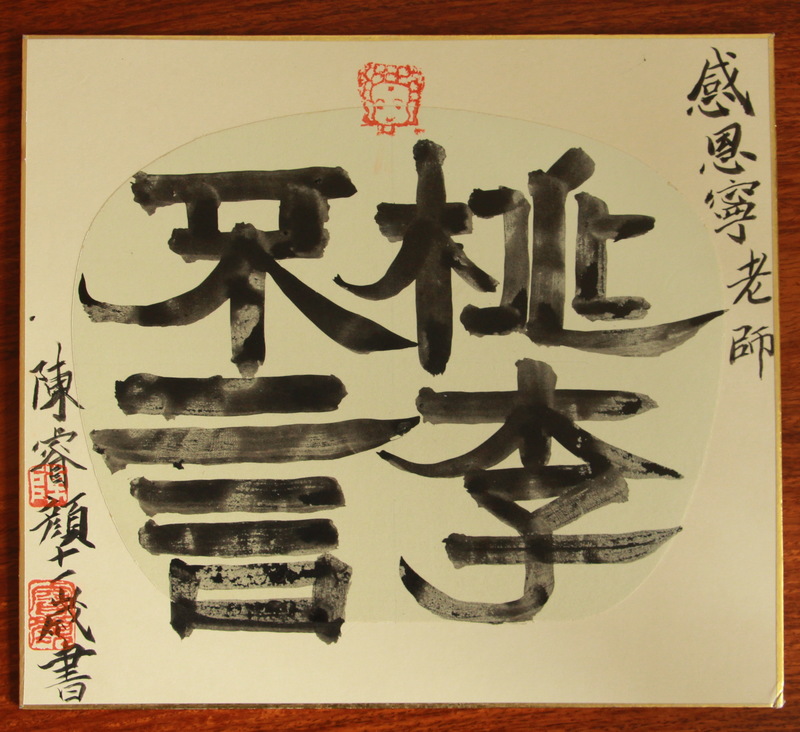 感恩寧老師
桃李
不言
陳睿顏十一歲書